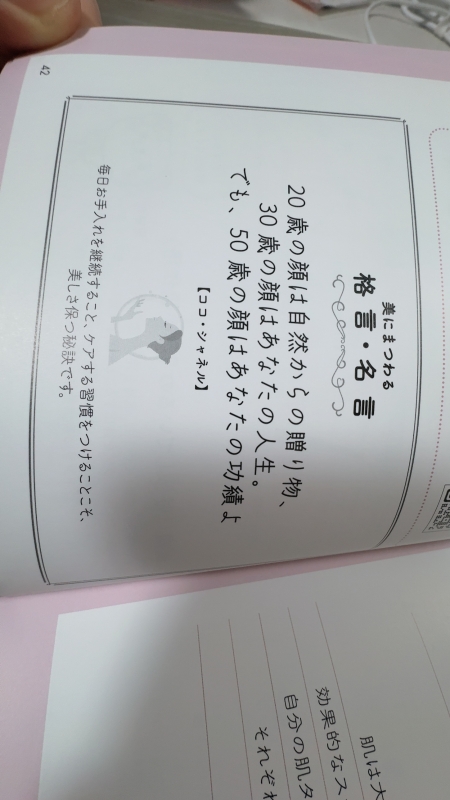 美にまつわる
格言・名言
20歳の顔は自然からの贈り物、
30歳の顔はあなたの人生。
でも、50歳の顔はあなたの功績よ
【ココ・シャネル】
毎日お手入れを継続すること、ケアする習慣をつけることこそ、
美しさ保つ秘訣です。
42
肌は大
効果的なス
自分の肌タ
それぞれ